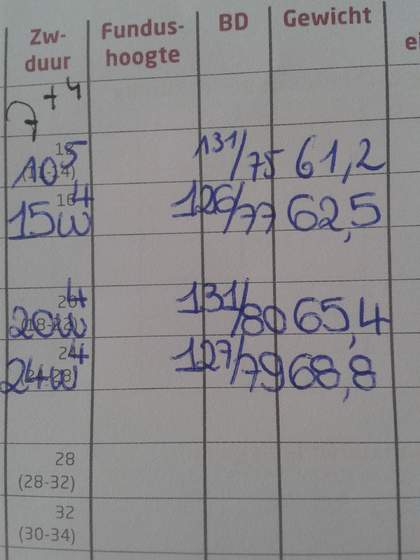 Zw-duur Fundus-hoogte BD Gewicht
7+4
10 5 131/75 61,2
15w 4 126/77 62,5
20w 4 131/80 65,4
24w 4 127/79 68,8
28
(28-32)
32
(30-34)